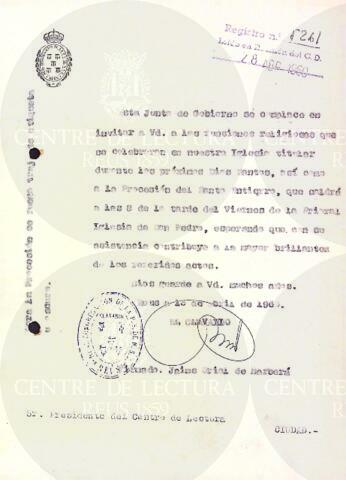 Registro n.º 5261
28 ABR 1960
Esta Junta de Gobierno se complace en
invitar a Vd. a las funciones religiosas que
se celebraran en nuestra Iglesia titular
durante los próximos Dias Santos, así como
a la Procesión del Santo Entierro, que saldrá
a las 8 de la tarde del Viernes de la Prioral
Iglesia de San Pedro, esperando que con su
asistencia contribuya a la mayor brillantez
de los referidos actos.
Dios guarde a Vd. muchos años.
Reus a 13 de abril de 1960.
EL CLAVARIO
Jaime Oriol de Barberá
Sr. Presidente del Centro de Lectura
CIUDAD.-
Para la Procesión se ruega traje de etiqueta
u oscuro.
CENTRE DE LECTURA
REUS 1859